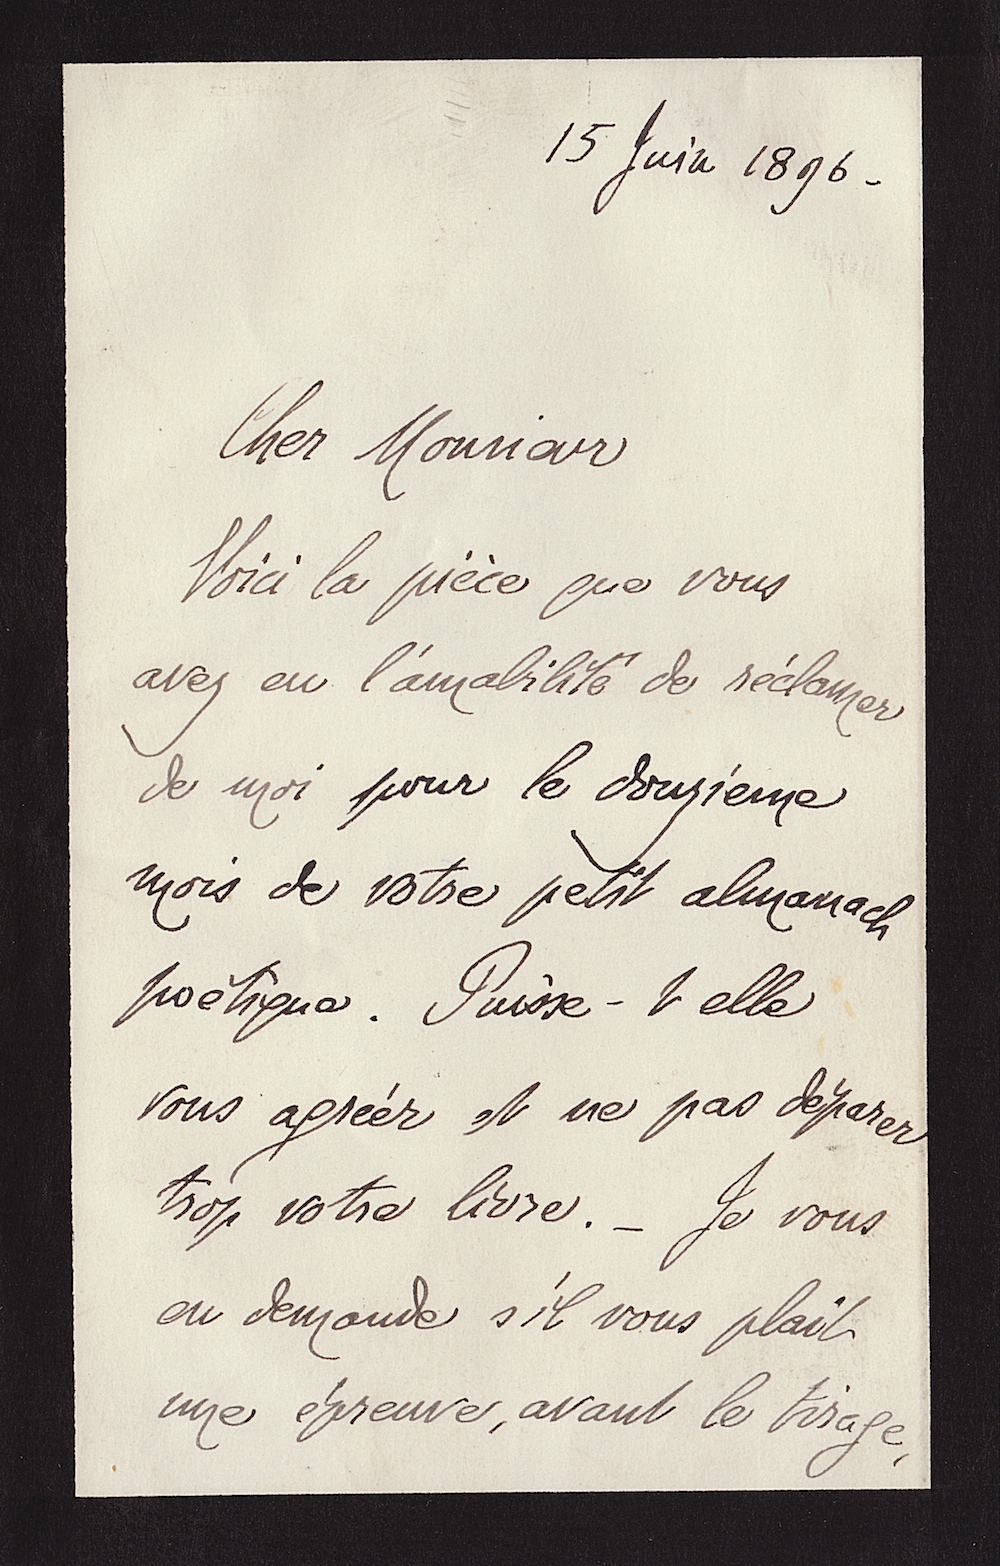 15 Juin 1896 -
Cher Monsieur
Voici la pièce que vous
avez eu l'amabilité de réclamer
de moi pour le douzième
mois de votre petit almanach
poétique. Puisse-t elle
vous agréér et ne pas déparer
trop votre livre. - Je vous
en demande s'il vous plait
une épreuve, avant le tirage,